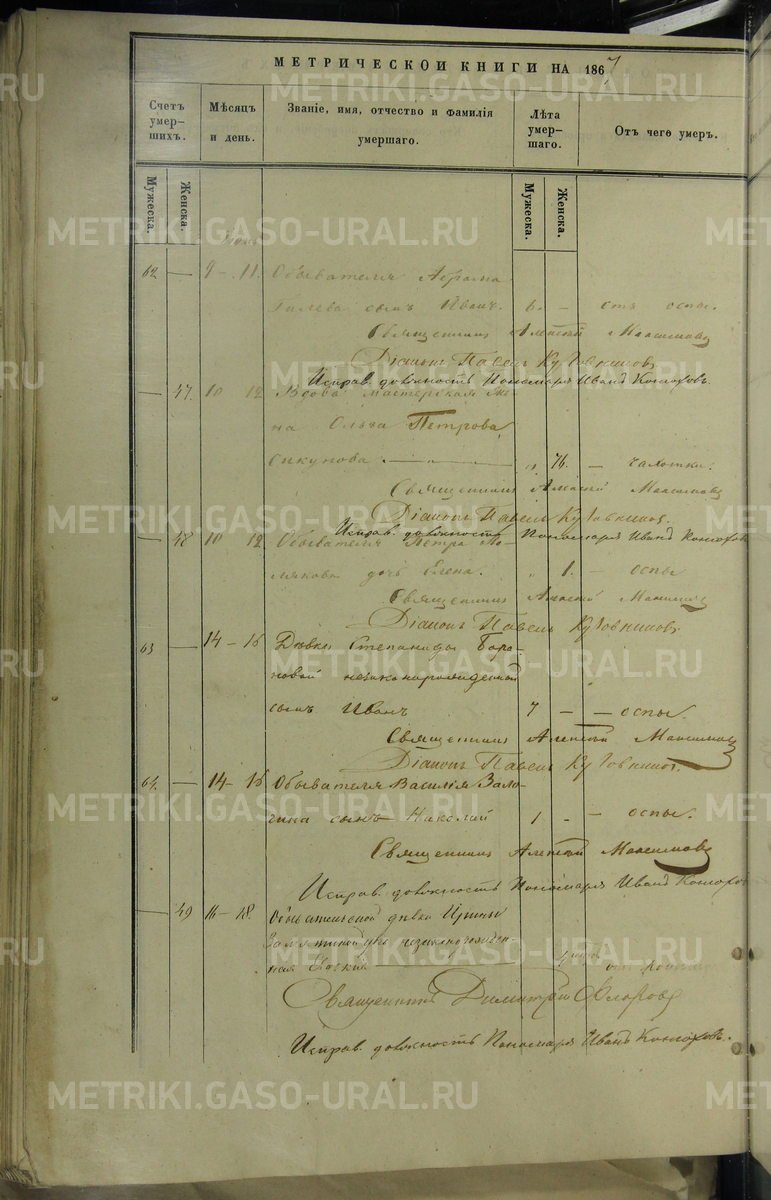 МЕТРИЧЕСКОЙ КНИГИ НА 1867
Счетъ умершихъ. Мѣсяцъ и день. Званіе, имя, отчество и фамилія умершаго. Лѣта умершаго. Отъ чего умеръ.
Мужеска. Женска. Мужеска. Женска.
62 — 9 – 11. Обывателя Абрама
сынъ Иванъ. 6. – отъ оспы.
Священникъ Алексѣй Максимовъ
Діаконъ Павелъ Кутовниковъ
Исправ. должность Пономаря Иванъ Конюховъ.
— 47. 10 12 Вдова мастерская же-
на Ольга Петрова
— 76. – чахотки.
Священникъ Алексѣй Максимовъ
Діаконъ Павелъ Кутовниковъ.
Исправ. должность Пономаря Иванъ Конюховъ
— 48 10 12 Обывателя Петра По-
дочь Елена. " 1. – оспы
Священникъ Алексѣй Максимовъ
Діаконъ Павелъ Кутовниковъ
63 — 14 – 16 Дѣвки Степаниды Боро-
новой незаконнорожденный
сынъ Иванъ 7 – – оспы.
Священникъ Алексѣй Максимовъ
Діаконъ Павелъ Кутовниковъ.
64. — 14 – 16 Обывателя Василія Зало-
сынъ Николай 1 – – оспы.
Священникъ Алексѣй Максимовъ
Исправ. должность Пономаря Иванъ Конюховъ
— 49 16 – 18. дѣвки Ирины
незаконнорожден-
ная
Священникъ Димитрій Флоровъ
Исправ. должность Пономаря Иванъ Конюховъ.
METRIKI.GASO-URAL.RU